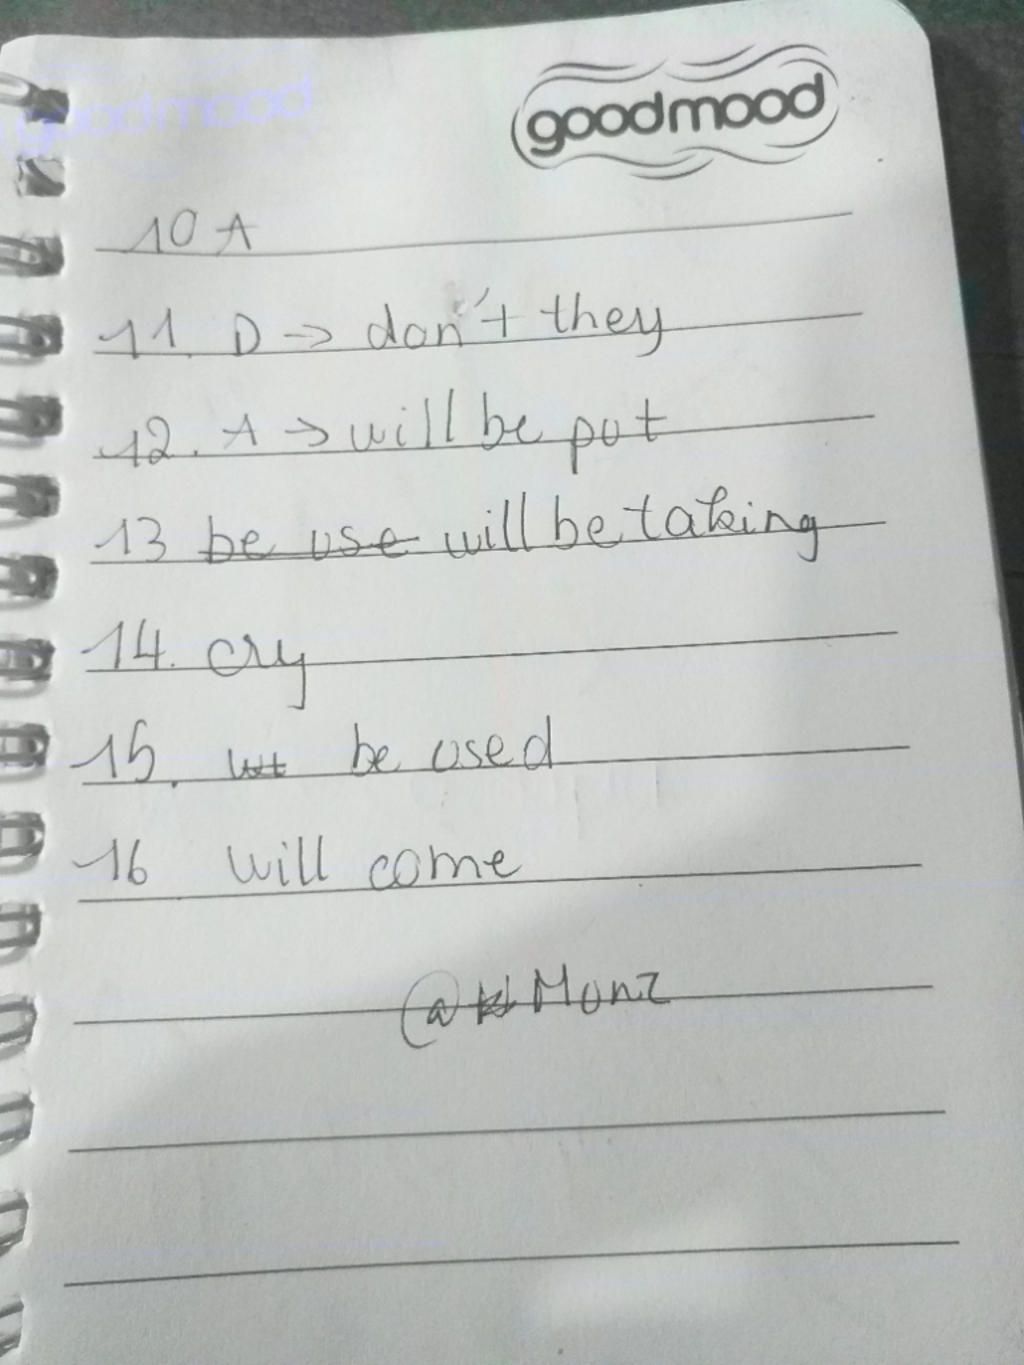 goodmood
10 A
11. D → don't they
12. A → will be put
13 be use will be taking
14. cry
15. be used
16 will come
@ Monz